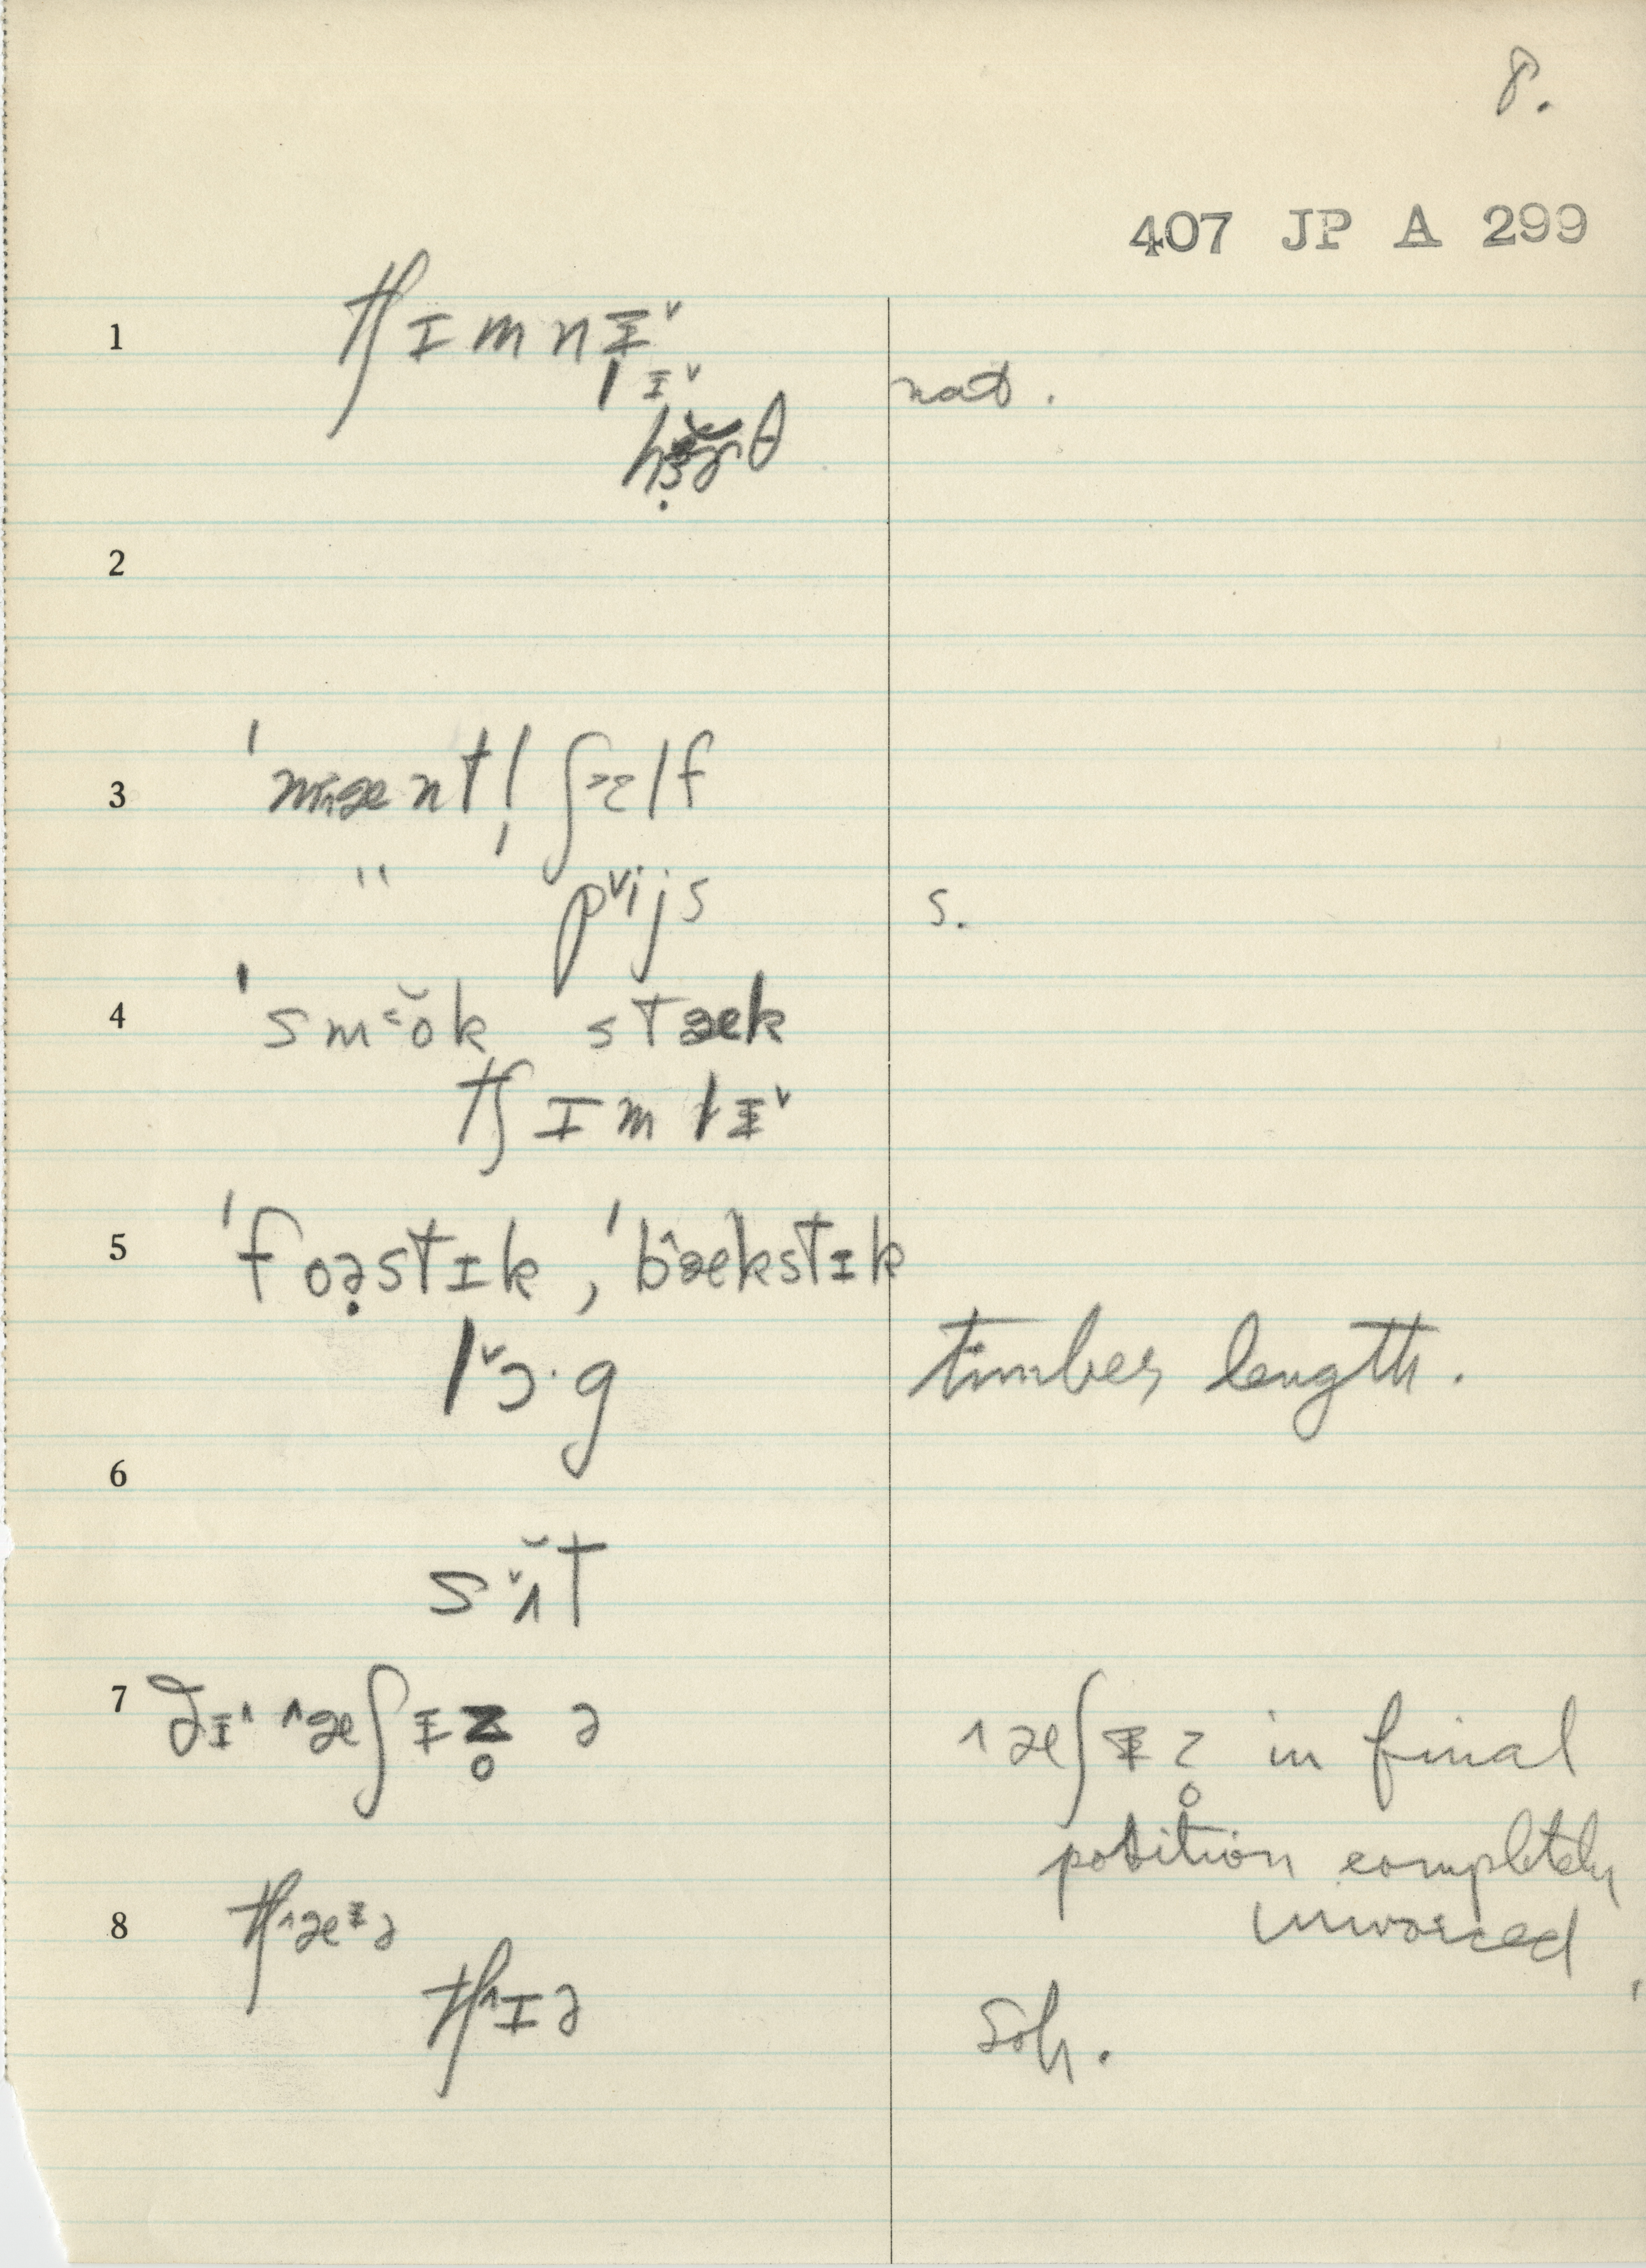 8.
407 JP A 299
1 tʃɪmnɨ˅
lɨ˅ nat.
hɚθ
2
3 ˈmæntl̩ ʃɛlf
" p˅ijs s.
4 ˈsm˂ŏk stæk
tʃɪmlɨ˅
5 ˈfoə̣stɪk, ˈb^ækstɪk
l˅ɔ·g timber length.
6
s˅ʌ̆t
7 ðɨ^ ^æʃɨz̥ ə ^æʃɨz̥ in final
position completely
unvoiced
8 tʃ^æɨə
tʃ^ɪə Soh.